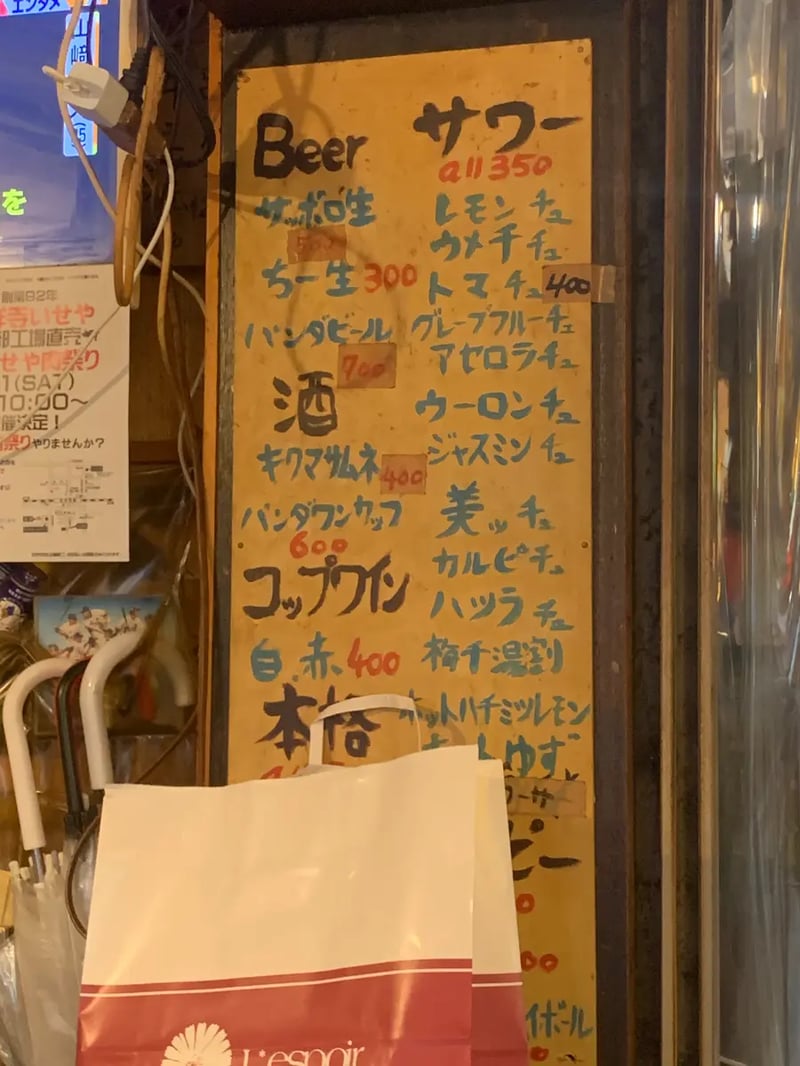 エンタメ
を
創業92年
寺いせや
部工場直売
せや肉祭り
1(SAT)
10:00〜
催決定!
肉祭りやりませんか?
Beer
サッポロ生
500
ちー生 300
パンダビール
700
酒
キクマサムネ 400
パンダワンカップ
600
コップワイン
白、赤 400
本格
サワー
all 350
レモンチュ
ウメチチュ
トマチュ 400
グレープフルーチュ
アセロラチュ
ウーロンチュ
ジャスミンチュ
美ッチュ
カルピチュ
ハツラチュ
梅干湯割
ホットハチミツレモン
ゆず
ピー
0
00
イボール
L'espoir